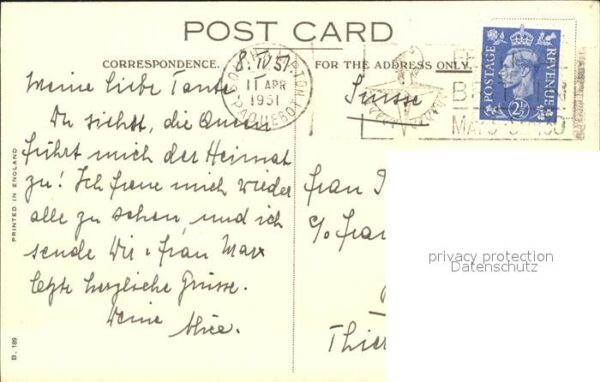 POST CARD
CORRESPONDENCE.
FOR THE ADDRESS ONLY.
8. IV 51.
SOUTHAMPTON
11 APR
1951
PAQUEBOT
POSTAGE
REVENUE
2½D
Meine liebe Tante
Du siehst, die Queen
führt mich der Heimat
zu! Ich freue mich wieder
alle zu sehen, und ich
sende Dir & Frau Marx
letzte herzliche Grüsse.
Deine Alice.
Suisse
Frau
c/o Frau
Thier
privacy protection
Datenschutz
PRINTED IN ENGLAND
B. 189